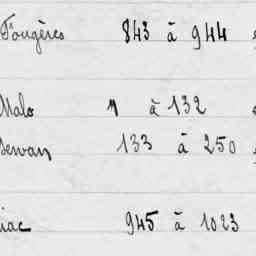 Fougères 843 à 944
Malo 1 à 132
Servan 133 à 250
iac 945 à 1023